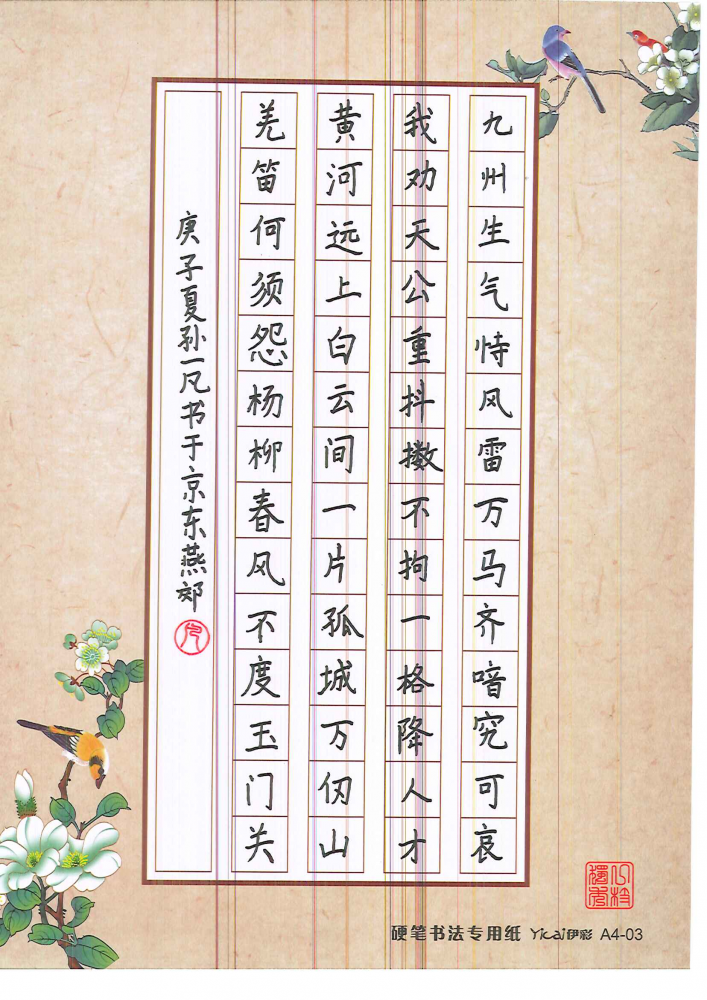 九州生气恃风雷万马齐喑究可哀
我劝天公重抖擞不拘一格降人才
黄河远上白云间一片孤城万仞山
羌笛何须怨杨柳春风不度玉门关
庚子夏孙一凡书于京东燕郊
硬笔书法专用纸 Yicai伊彩 A4-03